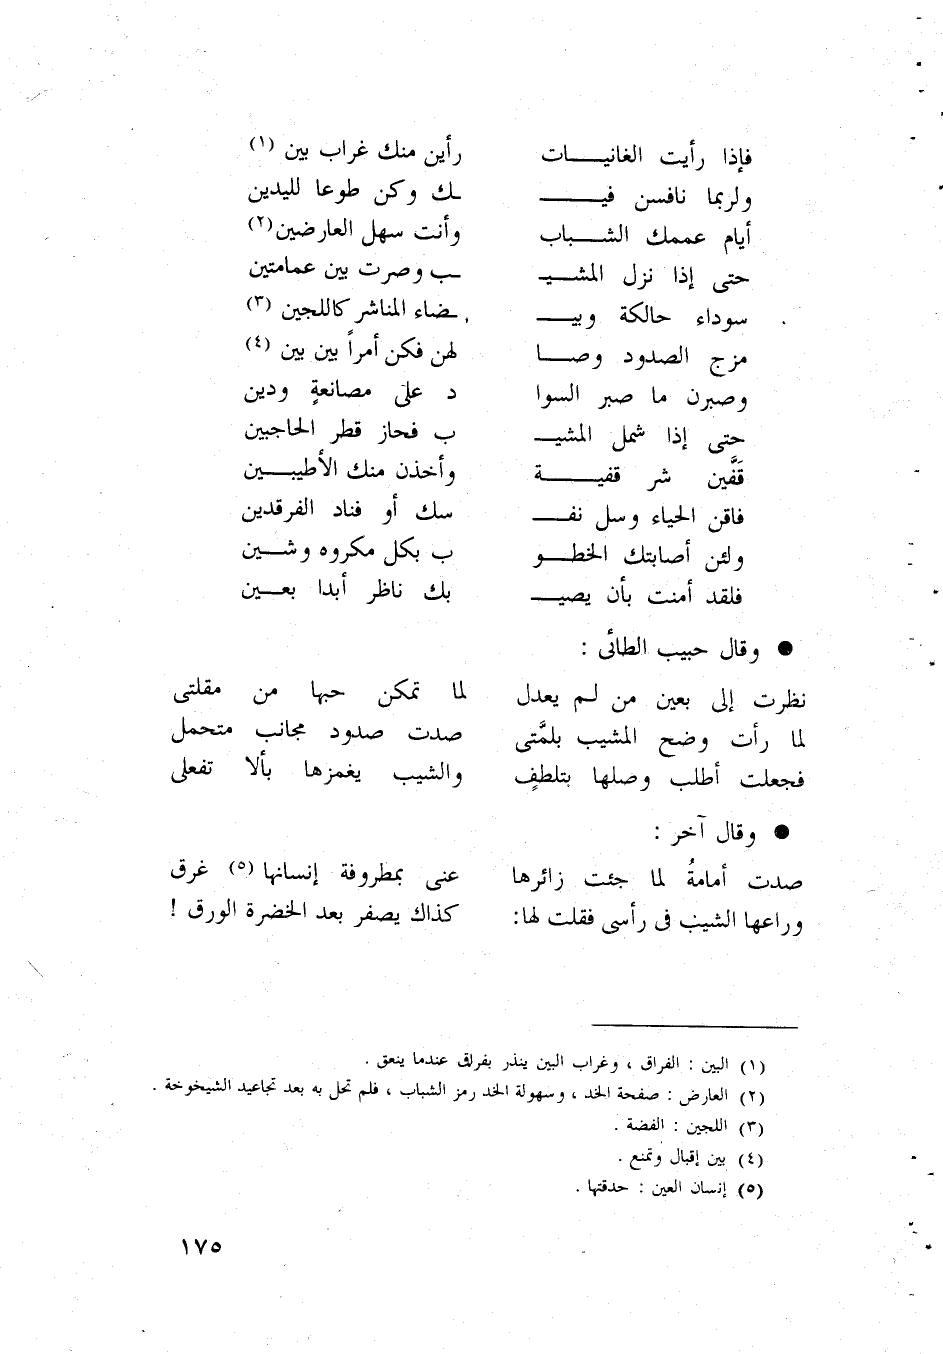 فإذا رأيت الغانيـــات رأين منك غراب بين (١)
ولربما نافسن فيـــ ـك وكن طوعا لليدين
أيام عممك الشـــباب وأنت سهل العارضين (٢)
حتى إذا نزل المشـــيـ ـب وصرت بين عمامتين
سوداء حالكة وبيـــ ـضاء المناشر كاللجين (٣)
مزج الصدود وصـــا لهن فكن أمراً بين بين (٤)
وصبرن ما صبر السوا د على مصانعةٍ ودين
حتى إذا شمل المشيـــ ب فحاز قطر الحاجبين
قَفَّين شر قفيـــة وأخذن منك الأطيبـــين
فاقن الحياء وسل نفـــ سك أو فناد الفرقدين
ولئن أصابتك الخطـــو ب بكل مكروه وشـــين
فلقد أمنت بأن يصيـــ بك ناظر أبدا بعـــين
● وقال حبيب الطائى :
نظرت إلى بعين من لم يعدل لما تمكن حبها من مقلتى
لما رأت وضح المشيب بلمَّتى صدت صدود مجانب متحمل
فجعلت أطلب وصلها بتلطفٍ والشيب يغمزها بألا تفعلى
● وقال آخر :
صدت أمامةُ لما جئت زائرها عنى بمطروفة إنسانها (٥) غرق
وراعها الشيب فى رأسى فقلت لها: كذاك يصفر بعد الخضرة الورق !
(١) البين : الفراق ، وغراب البين ينذر بفراق عندما ينعق .
(٢) العارض : صفحة الخد ، وسهولة الخد رمز الشباب ، فلم تحل به بعد تجاعيد الشيخوخة .
(٣) اللجين : الفضة .
(٤) بين إقبال وتمنع .
(٥) إنسان العين : حدقتها .
١٧٥